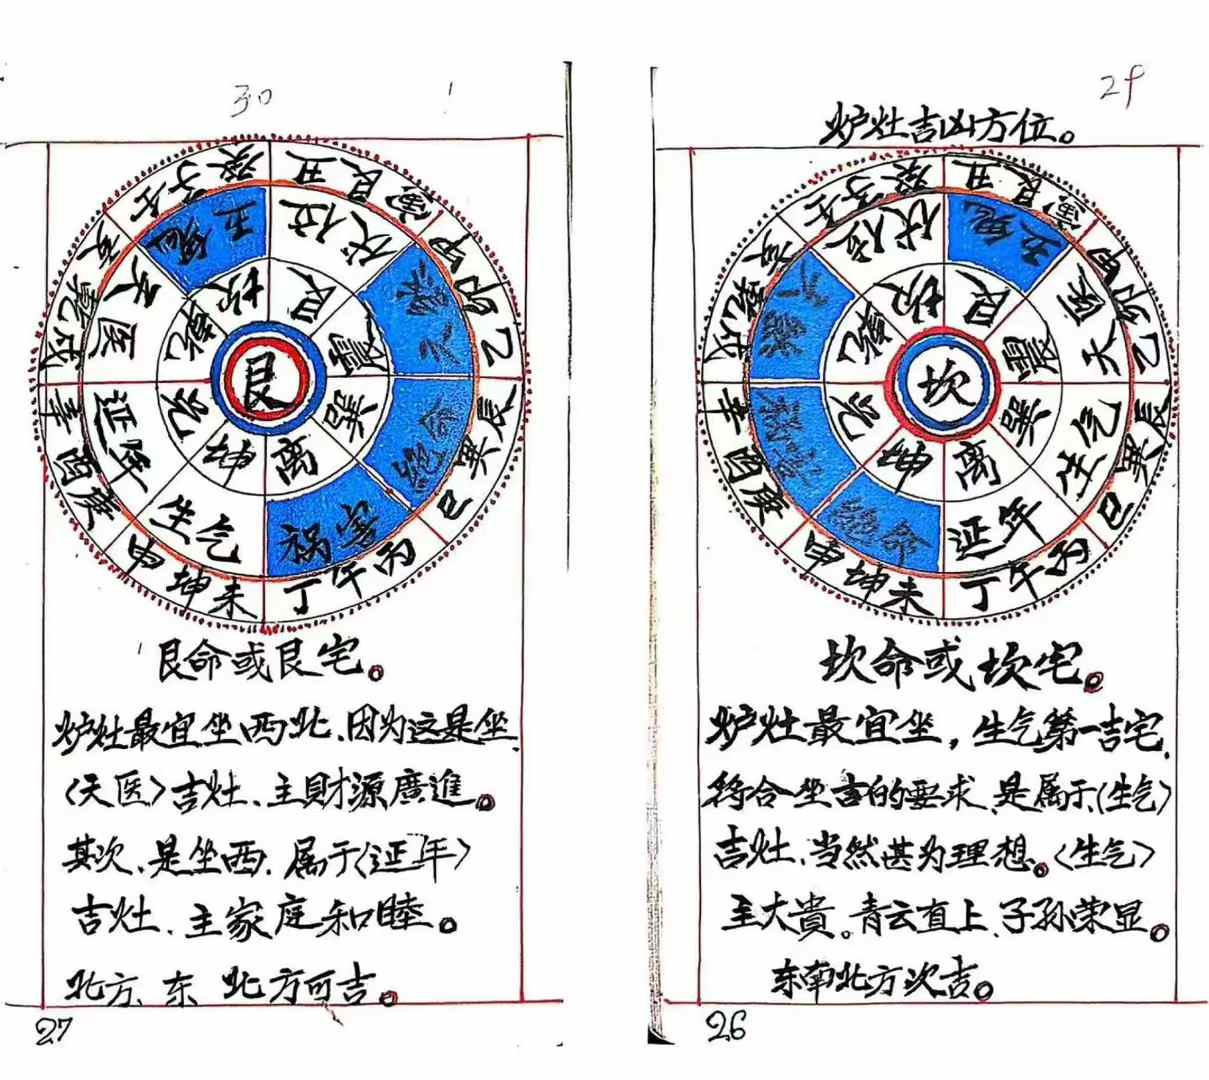 30
艮
坎
艮
震
巽
离
坤
兑
乾
五鬼
伏位
六煞
绝命
祸害
生气
延年
天医
壬子癸
丑艮寅
甲卯乙
辰巽巳
丙午丁
未坤申
庚酉辛
戌乾亥
艮命或艮宅。
炉灶最宜坐西北、因为这是坐
〈天医〉吉灶、主財源廣進。
其次、是坐西、属于〈延年〉
吉灶、主家庭和睦。
北方、东 北方可吉。
27
29
炉灶吉凶方位。
坎
坎
艮
震
巽
离
坤
兑
乾
伏位
五鬼
天医
生气
延年
绝命
祸害
六煞
壬子癸
丑艮寅
甲卯乙
辰巽巳
丙午丁
未坤申
庚酉辛
戌乾亥
坎命或坎宅。
炉灶最宜坐，生气第一吉宅、
符合坐吉的要求、是属于〈生气〉
吉灶、当然甚为理想。〈生气〉
主大貴。青云直上、子孙荣显。
东南北方次吉。
26